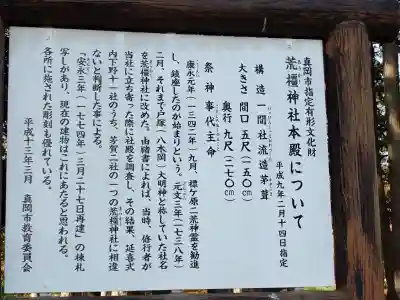 真岡市指定有形文化財
荒橿神社本殿について
平成九年二月十四日指定
構造 一間社流造茅葺
大きさ 間口 五尺(一五〇㎝)
奥行 九尺(二七〇㎝)
祭神 事代主命
康永元年(一三四二)九月、標ケ原二荒神霊を勧進
し、鎮座したのが始まりという。元文三年(一七三八年)
二月、それまで戸塚(八木岡)大明神と称していた社名
を荒橿神社に改めた。由緒書によれば、当時、修行者が
当社に立ち寄った際に社殿を調査し、その結果、延喜式
内下野十一社のうち、芳賀二社の一つの荒橿神社に相違
ないと判断した事による。
「安永三年(一七七四年)三月二十七日再建」の棟札
写しがあり、現在の建物はこれにあたると思われる。
各所に施された彫刻も優れている。
平成十三年三月 真岡市教育委員会